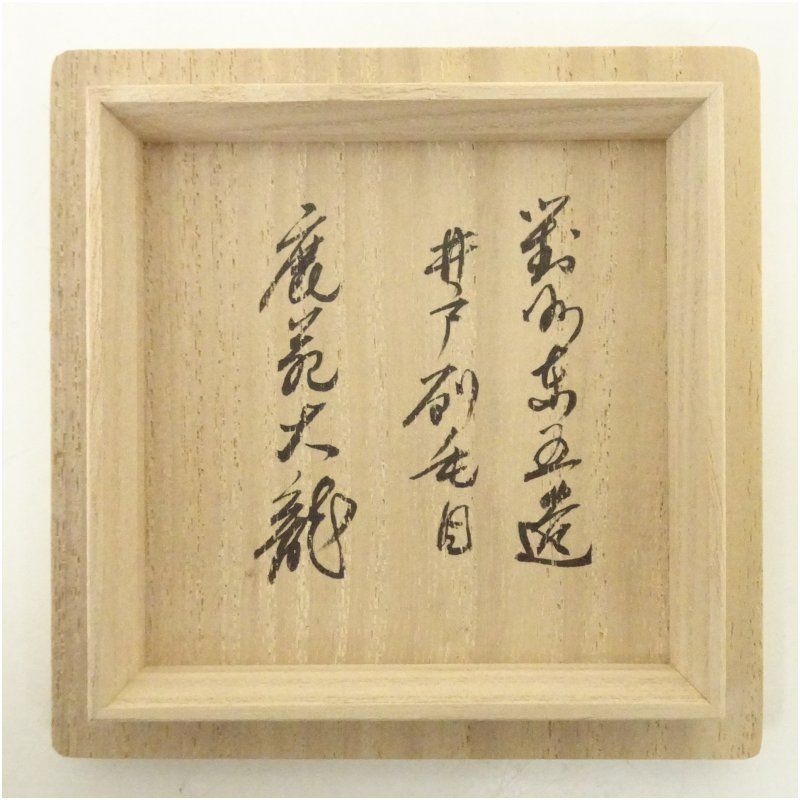 對州東五造
井戸刷毛目
鹿苑大龍